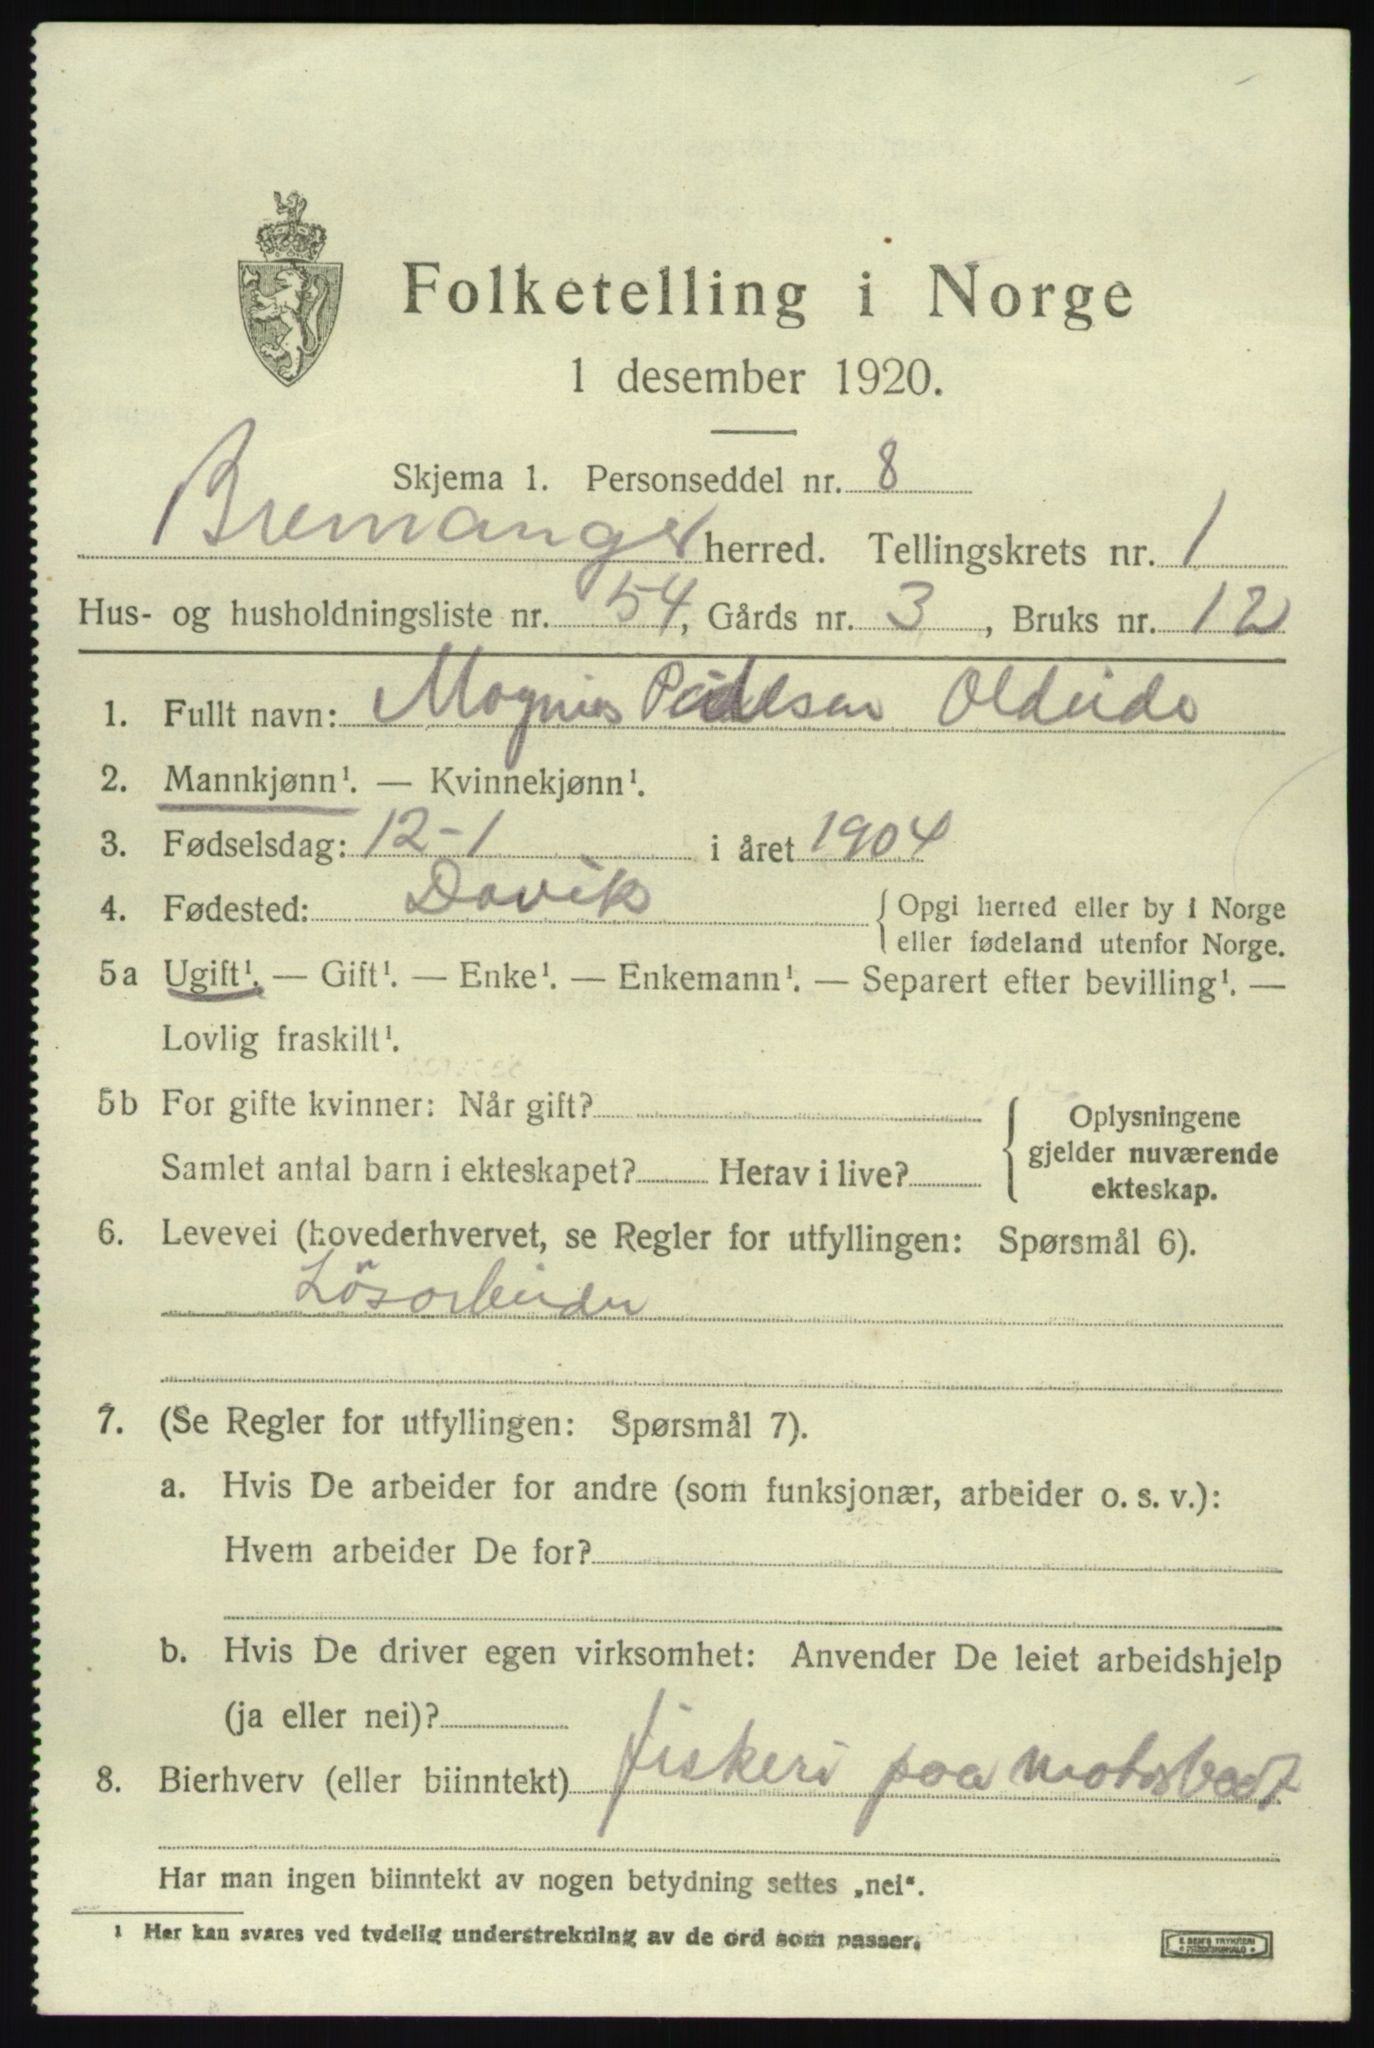 Folketelling i Norge
1 desember 1920.
Skjema 1. Personseddel nr. 8
Bremanger herred. Tellingskrets nr. 1
Hus- og husholdningsliste nr. 54, Gårds nr. 3, Bruks nr. 12
1. Fullt navn: Magnus Oldeide
2. Mannkjønn¹. — Kvinnekjønn¹.
3. Fødselsdag: 12-1 i året 1904
4. Fødested: Davik {Opgi herred eller by i Norge
eller fødeland utenfor Norge.
5a Ugift¹. — Gift¹. — Enke¹. — Enkemann¹. — Separert efter bevilling¹. —
Lovlig fraskilt¹.
5b For gifte kvinner: Når gift?
Samlet antal barn i ekteskapet? Herav i live?
{Oplysningene
gjelder nuværende
ekteskap.
6. Levevei (hovederhvervet, se Regler for utfyllingen: Spørsmål 6).
Lösarbeider
7. (Se Regler for utfyllingen: Spørsmål 7).
a. Hvis De arbeider for andre (som funksjonær, arbeider o. s. v.):
Hvem arbeider De for?
b. Hvis De driver egen virksomhet: Anvender De leiet arbeidshjelp
(ja eller nei)?
8. Bierhverv (eller biinntekt) fiskeri paa motorbaat
Har man ingen biinntekt av nogen betydning settes „nei“.
¹ Her kan svares ved tydelig understrekning av de ord som passer.